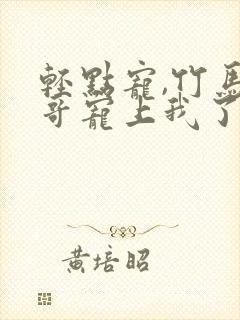 輕點寵,竹馬
哥寵上我了
黃培昭